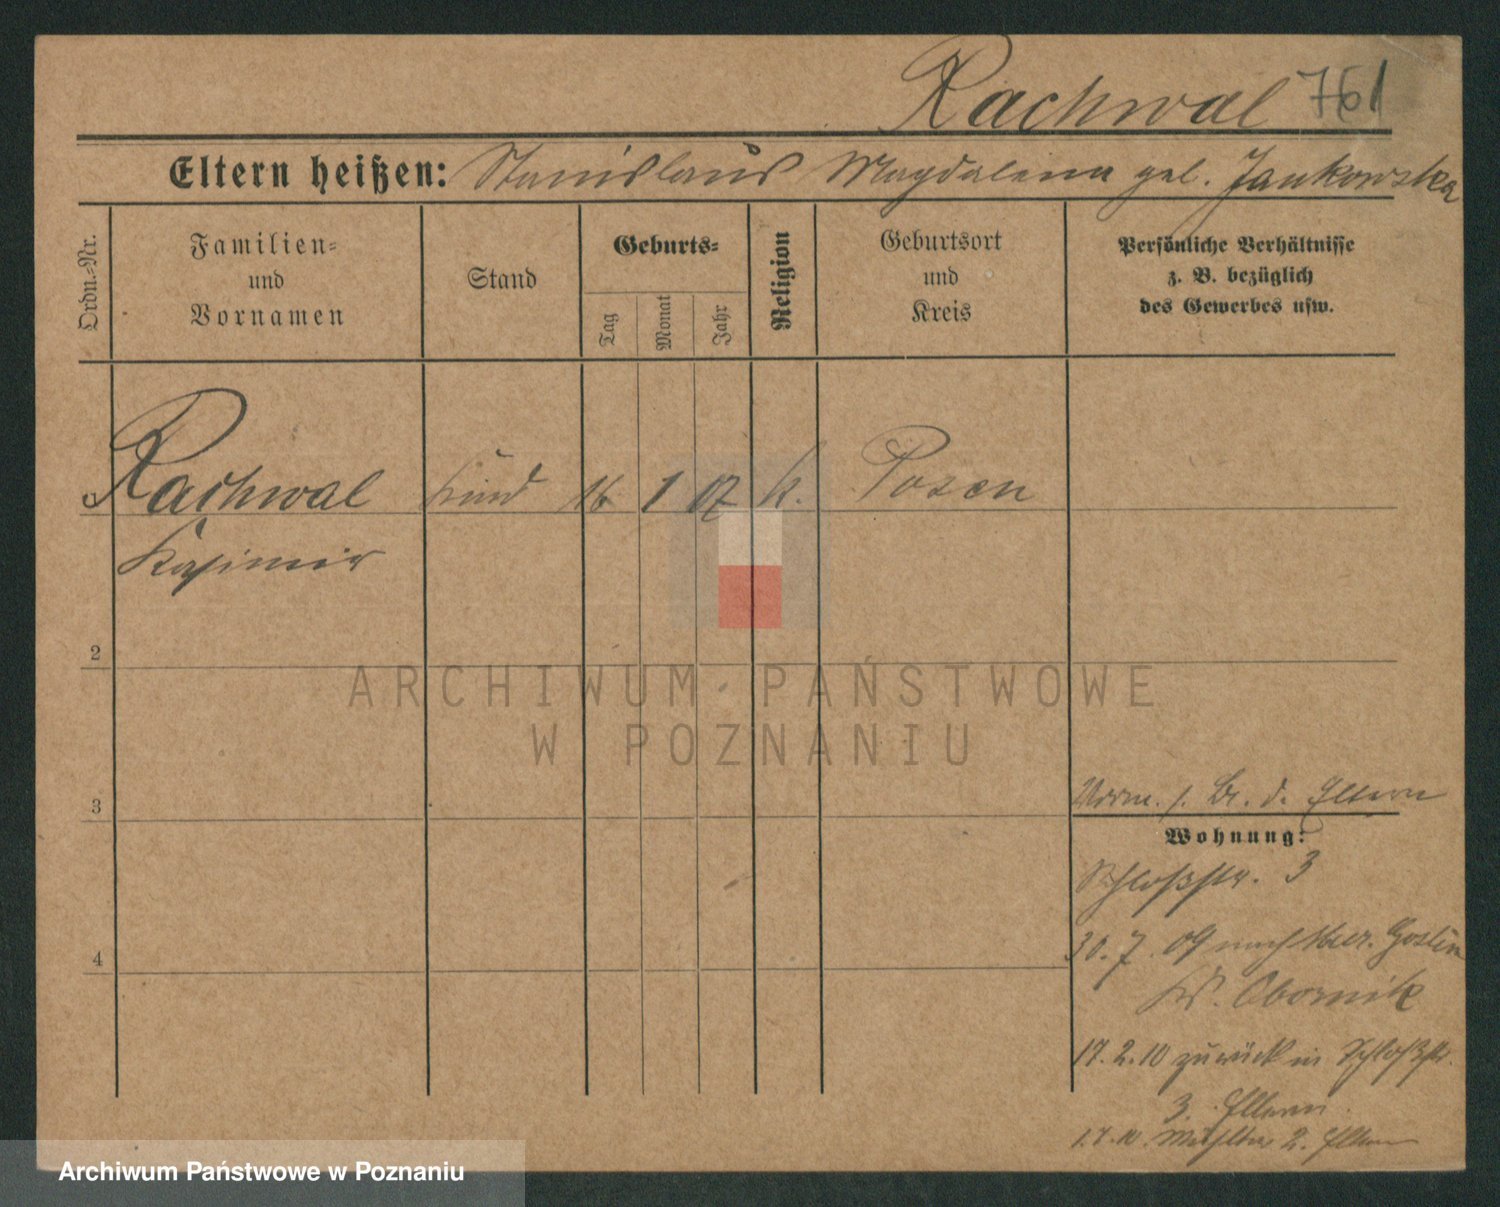 Rachwal 761
Eltern heißen: Stanislaus Magdalena geb. Jankowska
Ordn.=Nr.
Familien=
und
Vornamen
Stand
Geburts=
Tag
Monat
Jahr
Religion
Geburtsort
und
Kreis
Persönliche Verhältnisse
z. B. bezüglich
des Gewerbes usw.
Rachwal Kind 16 1 07 k. Posen
Kasimir
2
ARCHIWUM PAŃSTWOWE
W POZNANIU
3
d. Eltern
Wohnung:
Schloßstr. 3
4
30. 7. 09 nach Goslin
Kr. Obornik
17. 2. 10 zurück in Schloßstr.
3. Eltern.
2. Eltern
Archiwum Państwowe w Poznaniu